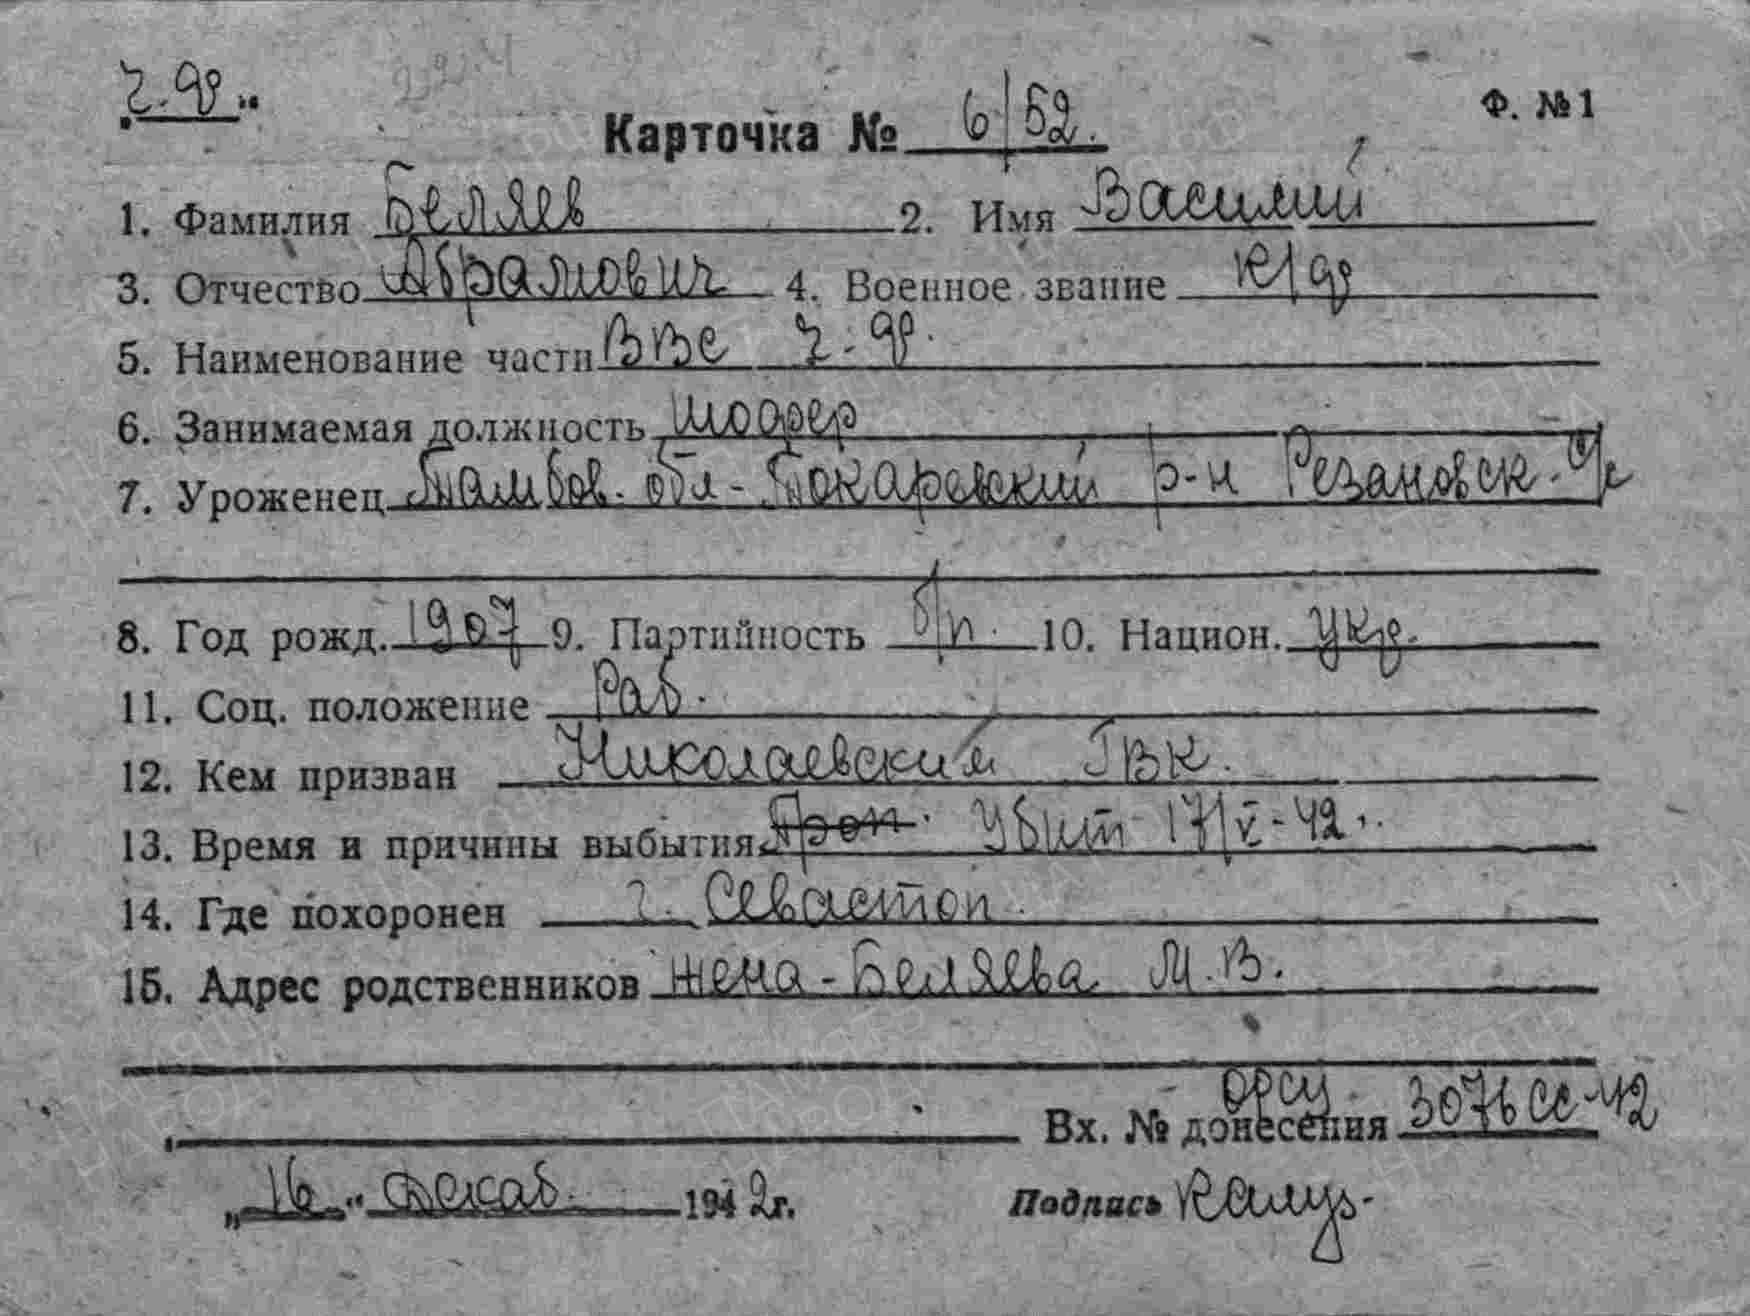 Ч.Ф.
Ф. № 1
Карточка № 6/52.
1. Фамилия Беляев 2. Имя Василий
3. Отчество Абрамович 4. Военное звание к/ф
5. Наименование части ВВС Ч.Ф.
6. Занимаемая должность шофер
7. Уроженец Тамбов. обл- Токаревский р-н Резановск. с/с
8. Год рожд. 1907 9. Партийность б/п. 10. Национ. укр.
11. Соц. положение Раб.
12. Кем призван Николаевский ГВК.
13. Время и причины выбытия Проп. Убит 17/V-42 г.
14. Где похоронен г. Севастоп.
15. Адрес родственников жена - Беляева М.В.
орсу
Вх. № донесения 3076сс-42
„16“ Декаб. 1942г. Подпись